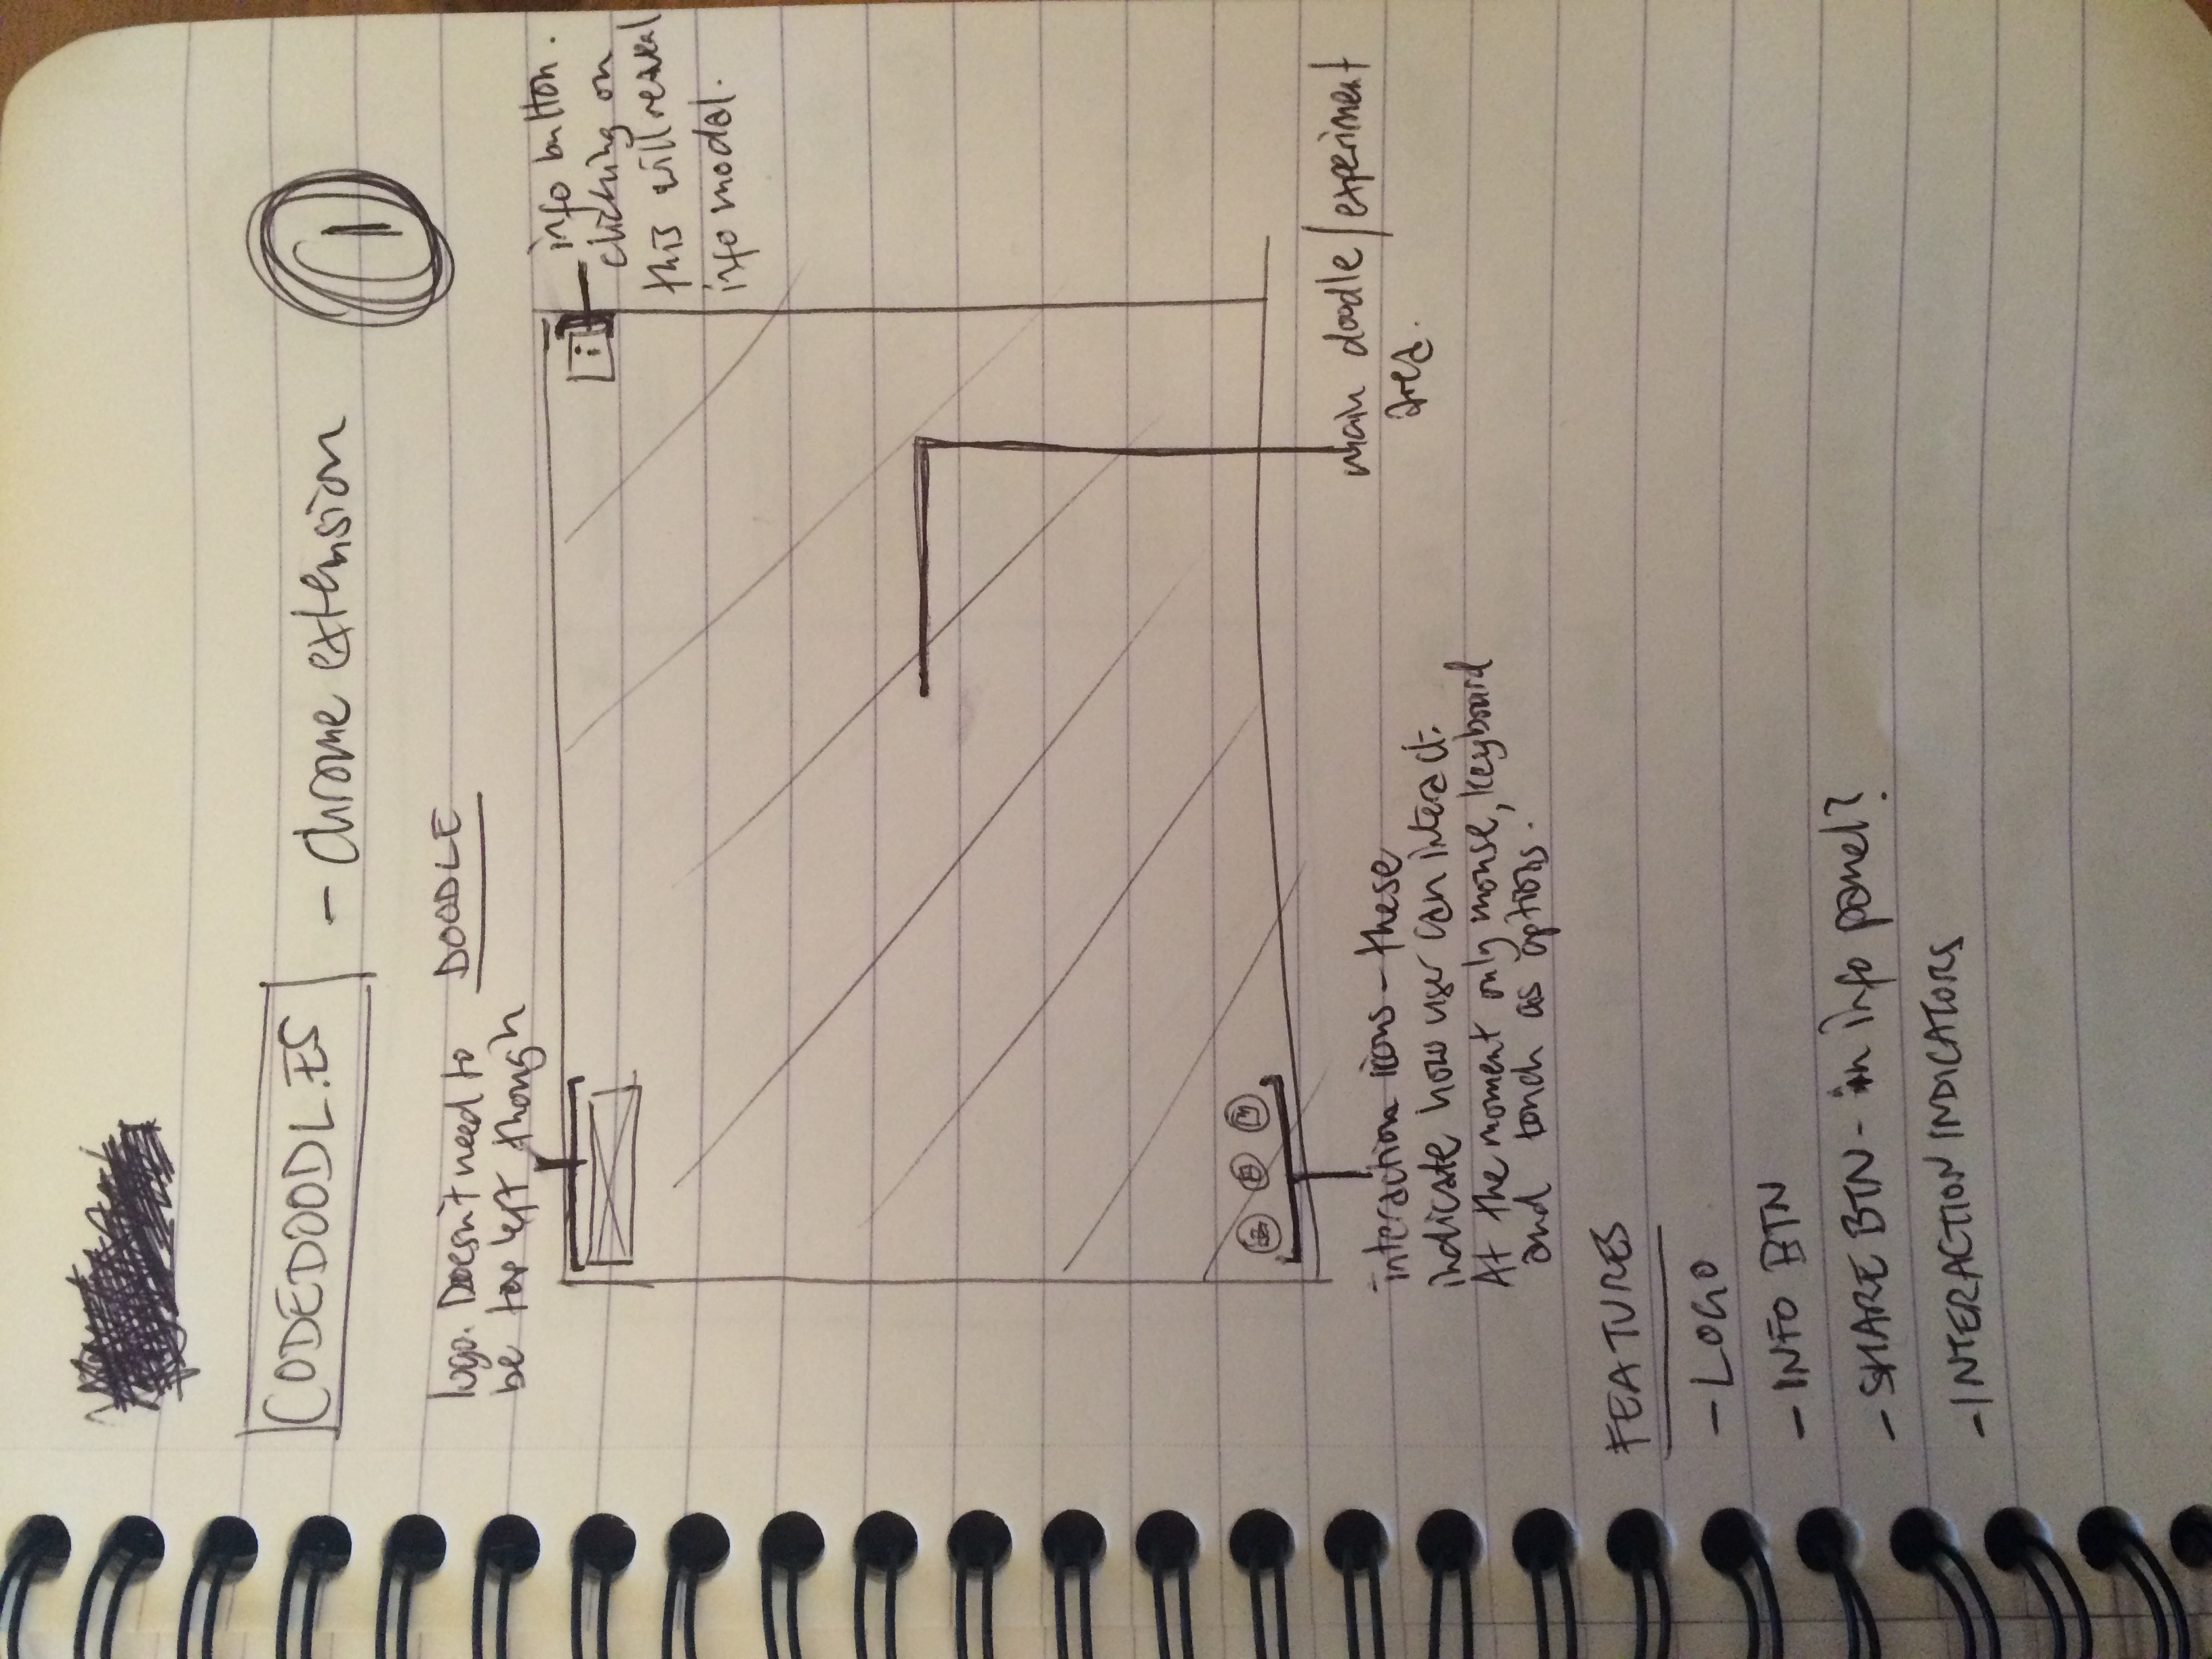 CODEDOODL.ES - Chrome extension
1
logo. Doesn't need to
be top left though
DOODLE
i
info button.
clicking on
this will reveal
info modal.
main doodle/experiment
area.
interaction icons - these
indicate how user can interact.
At the moment only mouse, keyboard
and touch as options.
FEATURES
- LOGO
- INFO BTN
- SHARE BTN - in info panel?
- INTERACTION INDICATORS